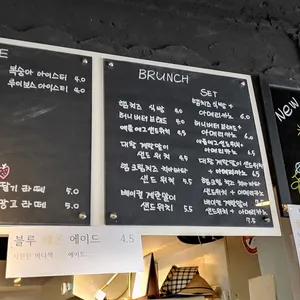 E
복숭아 아이스티 4.0
루이보스아이스티 4.0
딸기 라떼 5.0
망고 라떼 5.0
BRUNCH
햄치즈 식빵 4.0
허니버터 브레드 4.0
에그마요샌드위치 4.5
대왕 계란말이
샌드위치 4.5
햄크림치즈 치아바타
샌드위치 5.0
베이컨 계란말이
샌드위치 5.5
SET
햄치즈식빵 +
아메리카노 6.0
허니버터브레드 +
아메리카노 6.0
에그마요샌드위치 +
아메리카노 6.5
대왕 계란말이
샌드위치 + 아메리카노
햄크림 치즈 치아바타
샌드위치 + 아메리카노
베이컨 계란말이
샌드위치 + 아메리카노
7.5
NEW
블루 에이드 4.5
시원한 바다색
에이드